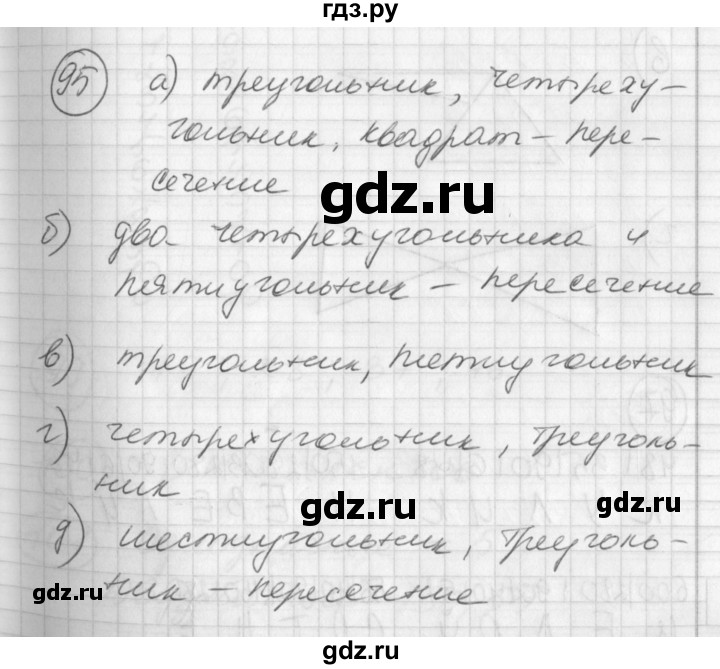 гдз.ру
95 а) треугольник, четыреху-
гольник, квадрат - пере-
сечение
gdz.ru
б) два четырехугольника и
пятиугольник - пересечение
в) треугольник, пятиугольник
г) четырехугольник, треуголь-
ник
gdz.ru
gdz.ru
д) шестиугольник, треуголь-
ник - пересечение
gdz.ru
gdz.ru